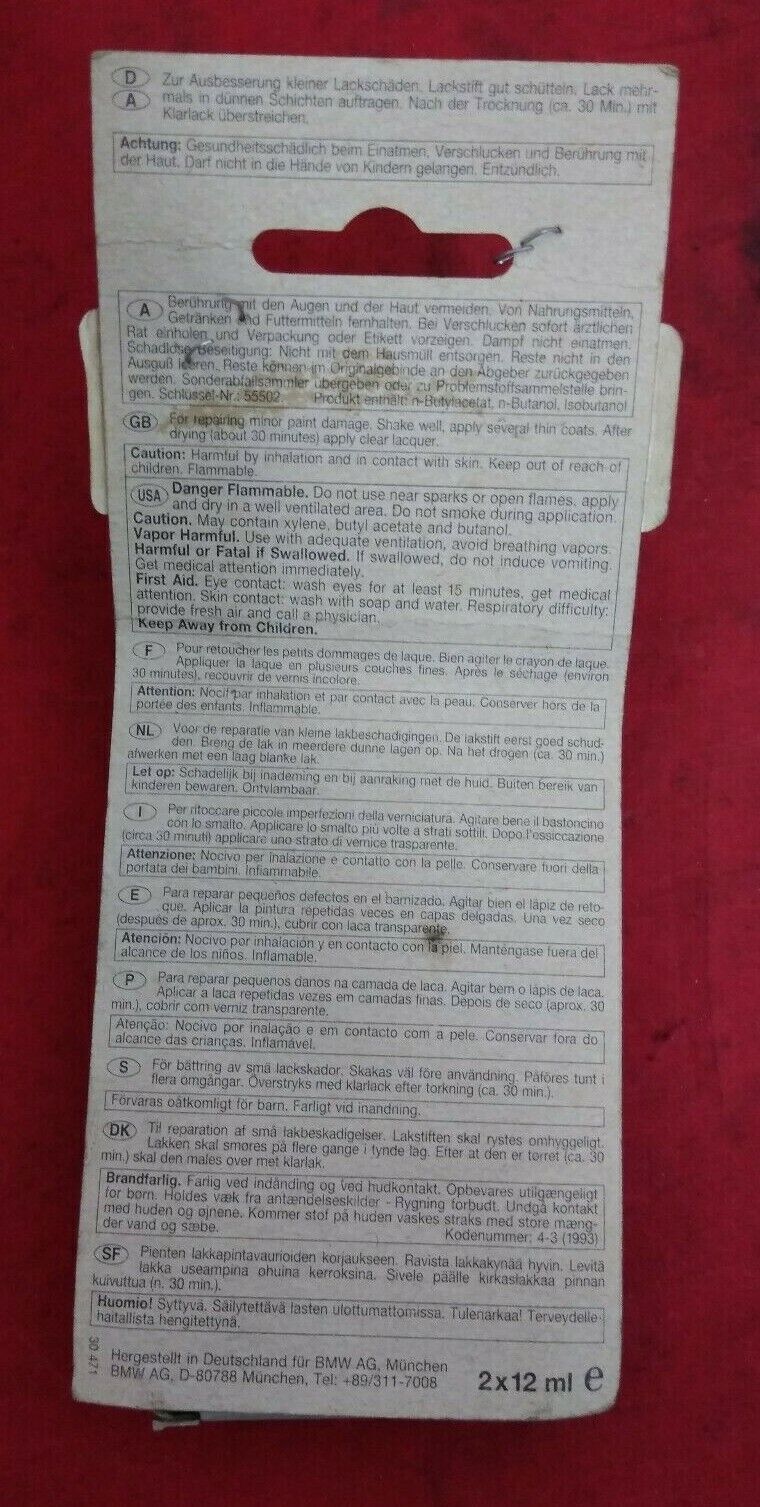 D Zur Ausbesserung kleiner Lackschäden. Lackstift gut schütteln. Lack mehr-
A mals in dünnen Schichten auftragen. Nach der Trocknung (ca. 30 Min.) mit
Klarlack überstreichen.
Achtung: Gesundheitsschädlich beim Einatmen, Verschlucken und Berührung mit
der Haut. Darf nicht in die Hände von Kindern gelangen. Entzündlich.
A Berührung mit den Augen und der Haut vermeiden. Von Nahrungsmitteln,
Getränken und Futtermitteln fernhalten. Bei Verschlucken sofort ärztlichen
Rat einholen und Verpackung oder Etikett vorzeigen. Dampf nicht einatmen.
Schadlose Beseitigung: Nicht mit dem Hausmüll entsorgen. Reste nicht in den
Ausguß leeren. Reste können im Originalgebinde an den Abgeber zurückgegeben
werden. Sonderabfallsammler übergeben oder zu Problemstoffsammelstelle brin-
gen. Schlüssel-Nr.: 55502. Produkt enthält: n-Butylacetat, n-Butanol, Isobutanol
GB For repairing minor paint damage. Shake well, apply several thin coats. After
drying (about 30 minutes) apply clear lacquer.
Caution: Harmful by inhalation and in contact with skin. Keep out of reach of
children. Flammable.
USA Danger Flammable. Do not use near sparks or open flames, apply
and dry in a well ventilated area. Do not smoke during application.
Caution. May contain xylene, butyl acetate and butanol.
Vapor Harmful. Use with adequate ventilation, avoid breathing vapors.
Harmful or Fatal if Swallowed. If swallowed, do not induce vomiting.
Get medical attention immediately.
First Aid. Eye contact: wash eyes for at least 15 minutes, get medical
attention. Skin contact: wash with soap and water. Respiratory difficulty:
provide fresh air and call a physician.
Keep Away from Children.
F Pour retoucher les petits dommages de laque. Bien agiter le crayon de laque.
Appliquer la laque en plusieurs couches fines. Après le séchage (environ
30 minutes), recouvrir de vernis incolore.
Attention: Nocif par inhalation et par contact avec la peau. Conserver hors de la
portée des enfants. Inflammable.
NL Voor de reparatie van kleine lakbeschadigingen. De lakstift eerst goed schud-
den. Breng de lak in meerdere dunne lagen op. Na het drogen (ca. 30 min.)
afwerken met een laag blanke lak.
Let op: Schadelijk bij inademing en bij aanraking met de huid. Buiten bereik van
kinderen bewaren. Ontvlambaar.
I Per ritoccare piccole imperfezioni della verniciatura. Agitare bene il bastoncino
con lo smalto. Applicare lo smalto più volte a strati sottili. Dopo l'essiccazione
(circa 30 minuti) applicare uno strato di vernice trasparente.
Attenzione: Nocivo per inalazione e contatto con la pelle. Conservare fuori della
portata dei bambini. Infiammabile.
E Para reparar pequeños defectos en el barnizado. Agitar bien el lápiz de reto-
que. Aplicar la pintura repetidas veces en capas delgadas. Una vez seco
(después de aprox. 30 min.), cubrir con laca transparente.
Atención: Nocivo por inhalación y en contacto con la piel. Manténgase fuera del
alcance de los niños. Inflamable.
P Para reparar pequenos danos na camada de laca. Agitar bem o lápis de laca.
Aplicar a laca repetidas vezes em camadas finas. Depois de seco (aprox. 30
min.), cobrir com verniz transparente.
Atenção: Nocivo por inalação e em contacto com a pele. Conservar fora do
alcance das crianças. Inflamável.
S För bättring av små lackskador. Skakas väl före användning. Påföres tunt i
flera omgångar. Överstryks med klarlack efter torkning (ca. 30 min.).
Förvaras oåtkomligt för barn. Farligt vid inandning.
DK Til reparation af små lakbeskadigelser. Lakstiften skal rystes omhyggeligt.
Lakken skal smøres på flere gange i tynde lag. Efter at den er tørret (ca. 30
min.) skal den males over met klarlak.
Brandfarlig. Farlig ved indånding og ved hudkontakt. Opbevares utilgængeligt
for børn. Holdes væk fra antændelseskilder - Rygning forbudt. Undgå kontakt
med huden og øjnene. Kommer stof på huden vaskes straks med store mæng-
der vand og sæbe. Kodenummer: 4-3 (1993)
SF Pienten lakkapintavaurioiden korjaukseen. Ravista lakkakynää hyvin. Levitä
lakka useampina ohuina kerroksina. Sivele päälle kirkaslakkaa pinnan
kuivuttua (n. 30 min.).
Huomio! Syttyvä. Säilytettävä lasten ulottumattomissa. Tulenarkaa! Terveydelle
haitallista hengitettynä.
30 471
Hergestellt in Deutschland für BMW AG, München
BMW AG, D-80788 München, Tel: +89/311-7008
2x12 ml e